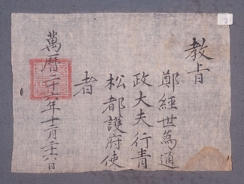 教旨
鄭經世為通
政大夫行青
松都護府使
者
萬曆二十六年十二月二十六日